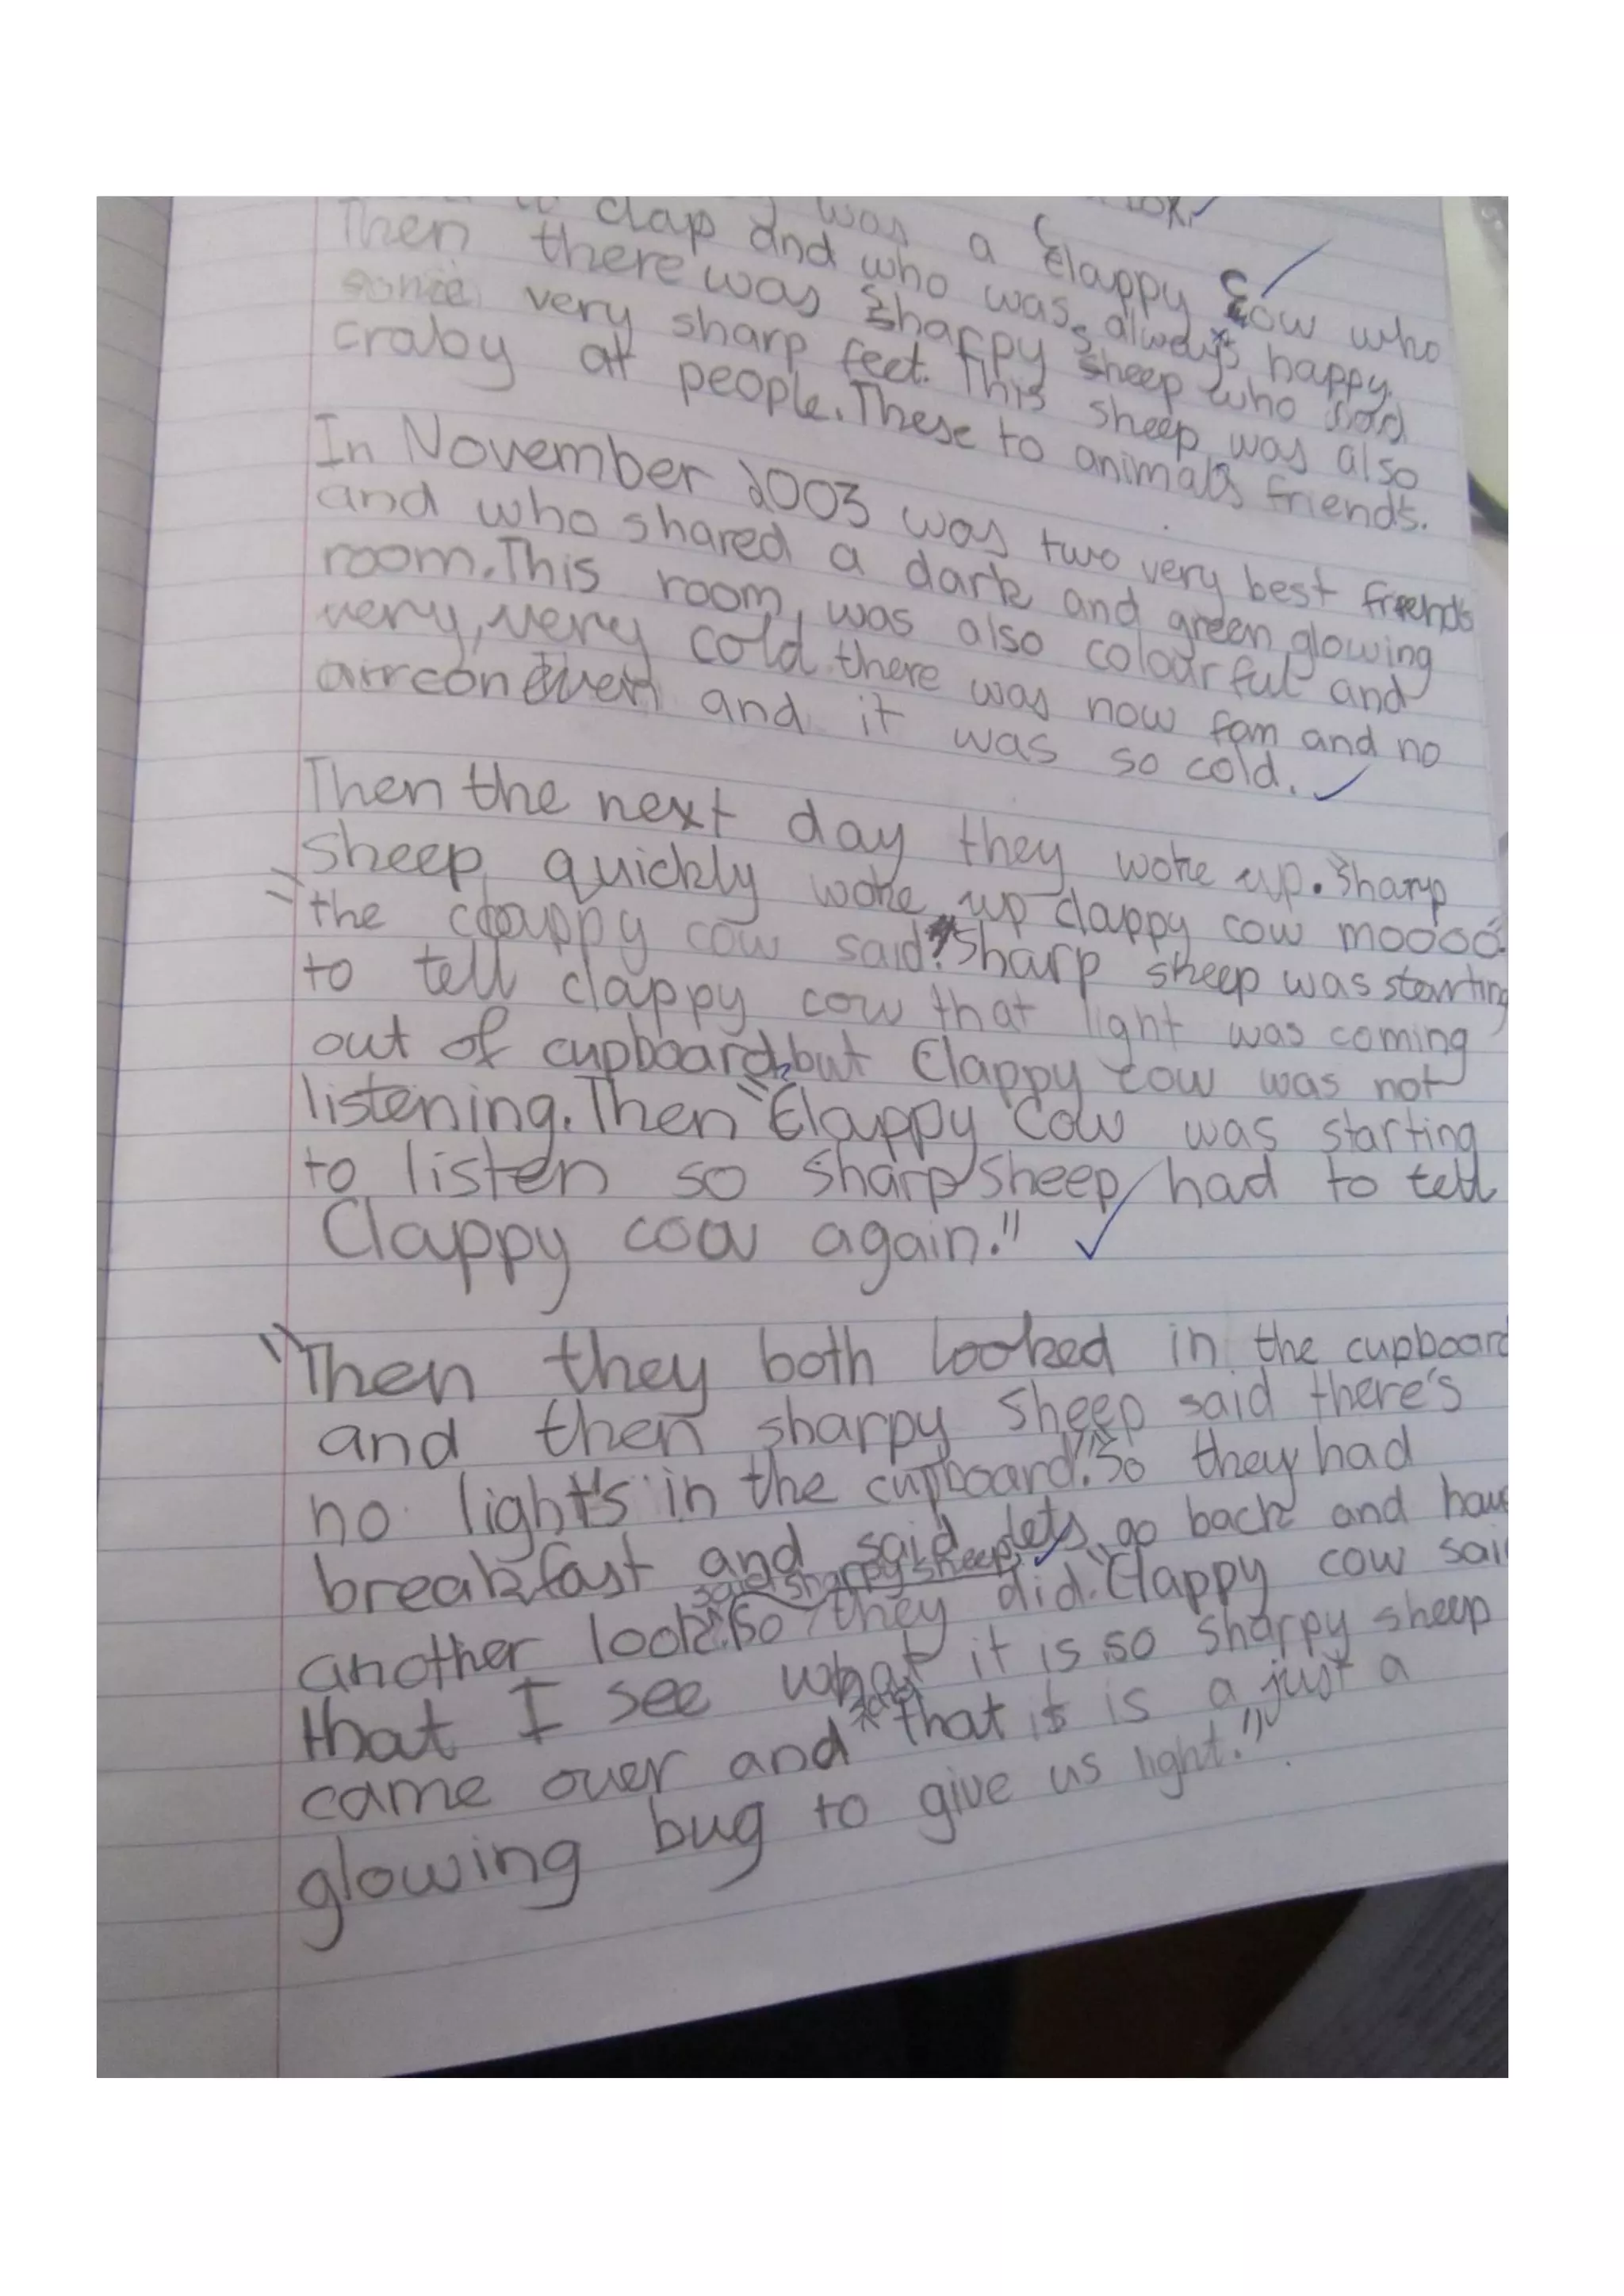 was a Clappy Cow who
clap and who was always happy.
Then there was Sharpy Sheep who had
some very sharp feet. This sheep was also
craby at people. These to animals friends.
In November 2003 was two very best friends
and who shared a dark and green glowing
room. This room was also colourful and
very, very cold there was now fam and no
aircon even and it was so cold.
Then the next day they woke up. Sharp
sheep quickly woke up clappy cow moooo
"the clappy cow said. Sharp sheep was starting
to tell clappy cow that light was coming
out of cupboard, but Clappy cow was not
listening. Then "Clappy Cow was starting
to listen so Sharp Sheep had to tell
Clappy cow again."
"Then they both looked in the cupboard
and then sharpy Sheep said there's
no light's in the cupboard." So they had
breakfast and said lets go back and have
said sharpy sheep
another look". So they did. "Clappy cow said
that I see what it is so sharpy sheep
came over and "that it is a just a
glowing bug to give us light."